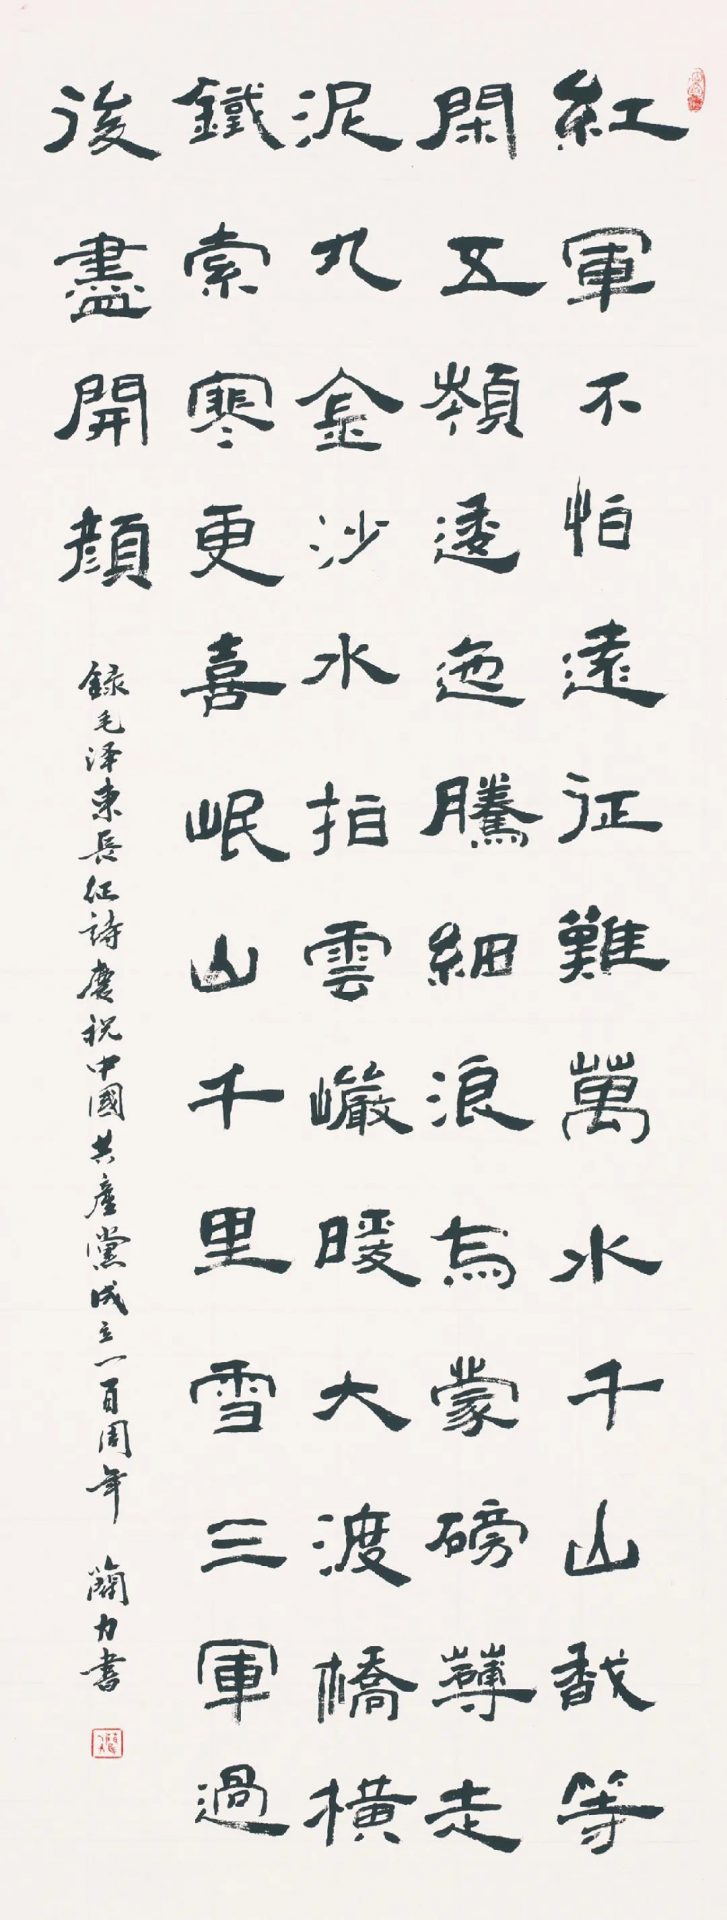 紅軍不怕遠征難萬水千山等
閑五嶺逶迤騰細浪烏蒙磅礴走
泥丸金沙水拍雲巖暖大渡橋橫
鐵索寒更喜岷山千里雪三軍過
後盡開顏
錄毛泽東長征詩慶祝中國共產黨成立一百周年 力書